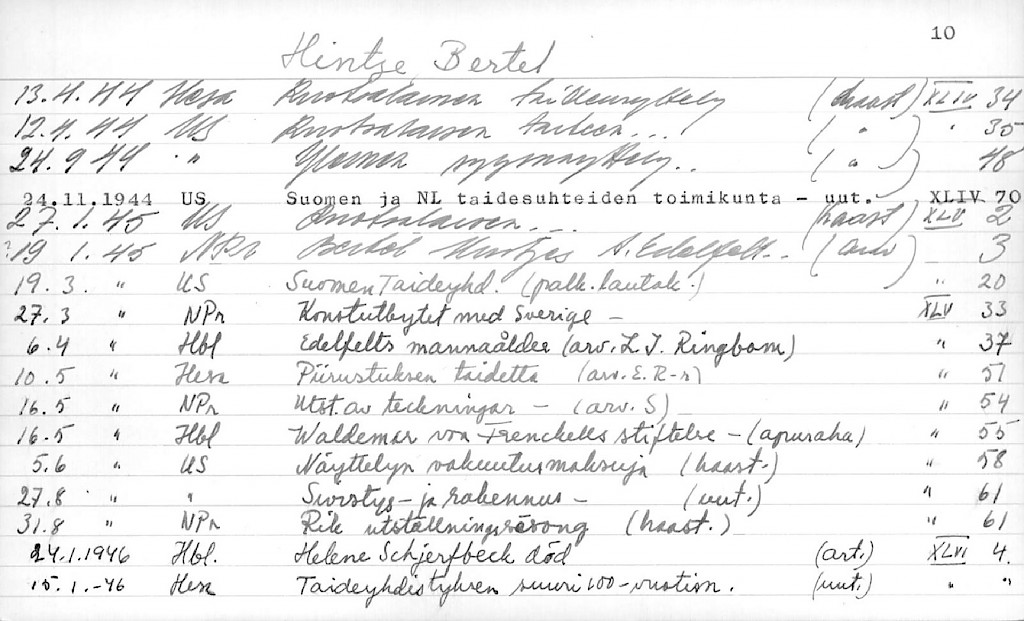 10
Hintze Bertel
13.4.44 Hesa Ruotsalainen taidenäyttely (haast) XLIV 34
12.4.44 US Ruotsalainen taiteen... ( " ) " 35
24.9 44 " " Yleinen syysnäyttely.. ( " ) 48
24.11.1944 US Suomen ja NL taidesuhteiden toimikunta - uut. XLIV 70
27.1.45 US Ruotsalainen... (haast) XLV 2
?19 1.45 NPr Bertel Hintzes A. Edelfelt.. (arv) 3
19.3. " US Suomen Taideyhd. (palk.lautak.) " 20
27.3 " NPr Konstutbytet med Sverige - XLV 33
6.4 " Hbl Edelfelts mannaålder (arv. L.I. Ringbom) " 37
10.5 " Hesa Piirustuksen taidetta (arv. E. R-r) " 51
16.5 " NPr Utst. av teckningar - (arv. S) " 54
16.5 " Hbl Waldemar von Frenckells stiftelse - (apuraha) " 55
5.6 " US Näyttelyn vakuutusmaksuja (haast.) " 58
27.8 " " Sivistys- ja rakennus - (uut.) " 61
31.8 " NPr Rik utställningssäsong (haast.) " 61
24.1.1946 Hbl. Helene Schjerfbeck död (art.) XLVI 4.
15.1.-46 Hesa Taideyhdistyksen suuri 100-vuotisn. (uut.) " "